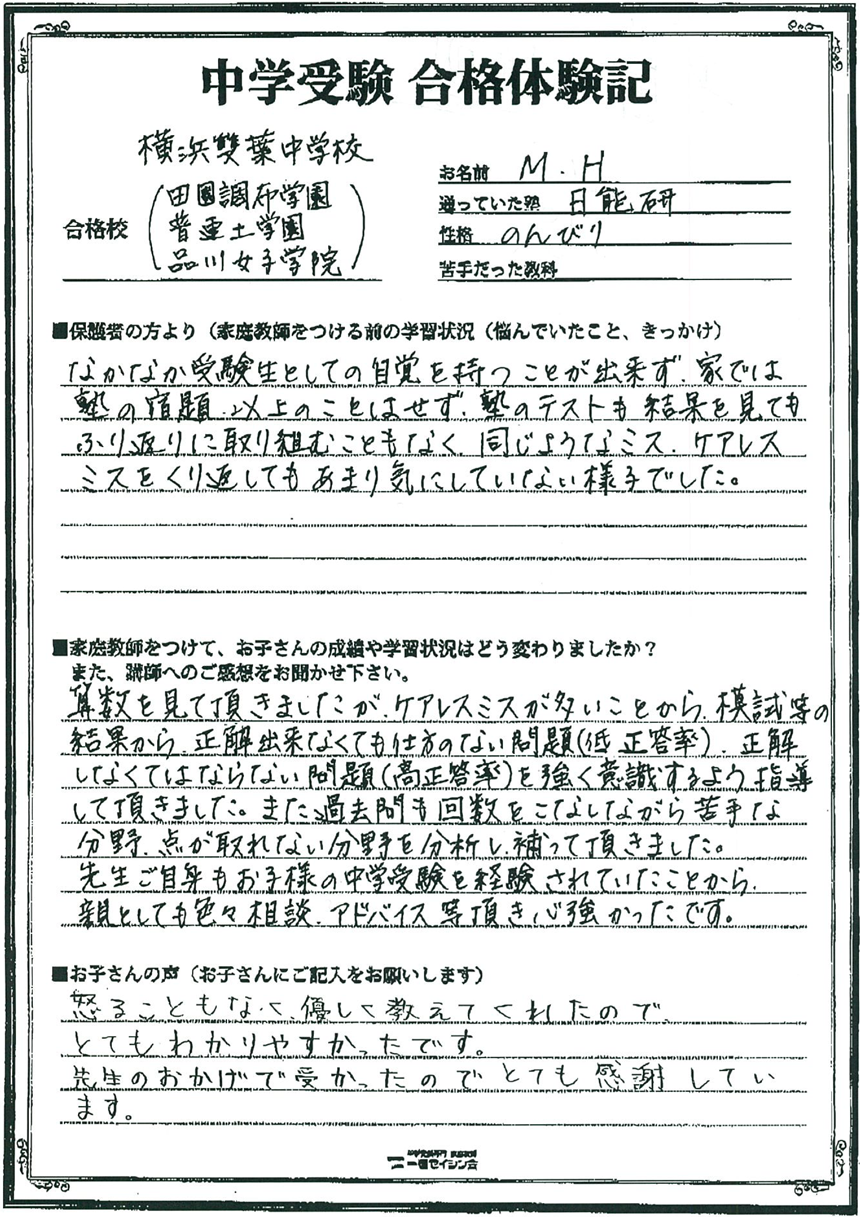 中学受験 合格体験記
横浜雙葉中学校
合格校
田園調布学園
普連土学園
品川女子学院
お名前 M.H
通っていた塾 日能研
性格 のんびり
苦手だった教科
■保護者の方より（家庭教師をつける前の学習状況（悩んでいたこと、きっかけ）
なかなか受験生としての自覚を持つことが出来ず、家では
塾の宿題以上のことはせず、塾のテストも結果を見ても
ふり返りに取り組むこともなく、同じようなミス、ケアレス
ミスをくり返してもあまり気にしていない様子でした。
■家庭教師をつけて、お子さんの成績や学習状況はどう変わりましたか？
また、講師へのご感想をお聞かせ下さい。
算数を見て頂きましたが、ケアレスミスが多いことから、模試等の
結果から、正解出来なくても仕方のない問題(低正答率)、正解
しなくてはならない問題(高正答率)を強く意識するよう指導
して頂きました。また過去問も回数をこなしながら苦手な
分野、点が取れない分野を分析し、補って頂きました。
先生ご自身もお子様の中学受験を経験されていたことから、
親としても色々相談、アドバイス等頂き心強かったです。
■お子さんの声（お子さんにご記入をお願いします）
怒ることもなく、優しく教えてくれたので、
とてもわかりやすかったです。
先生のおかげで受かったのでとても感謝してい
ます。
一橋セイシン会